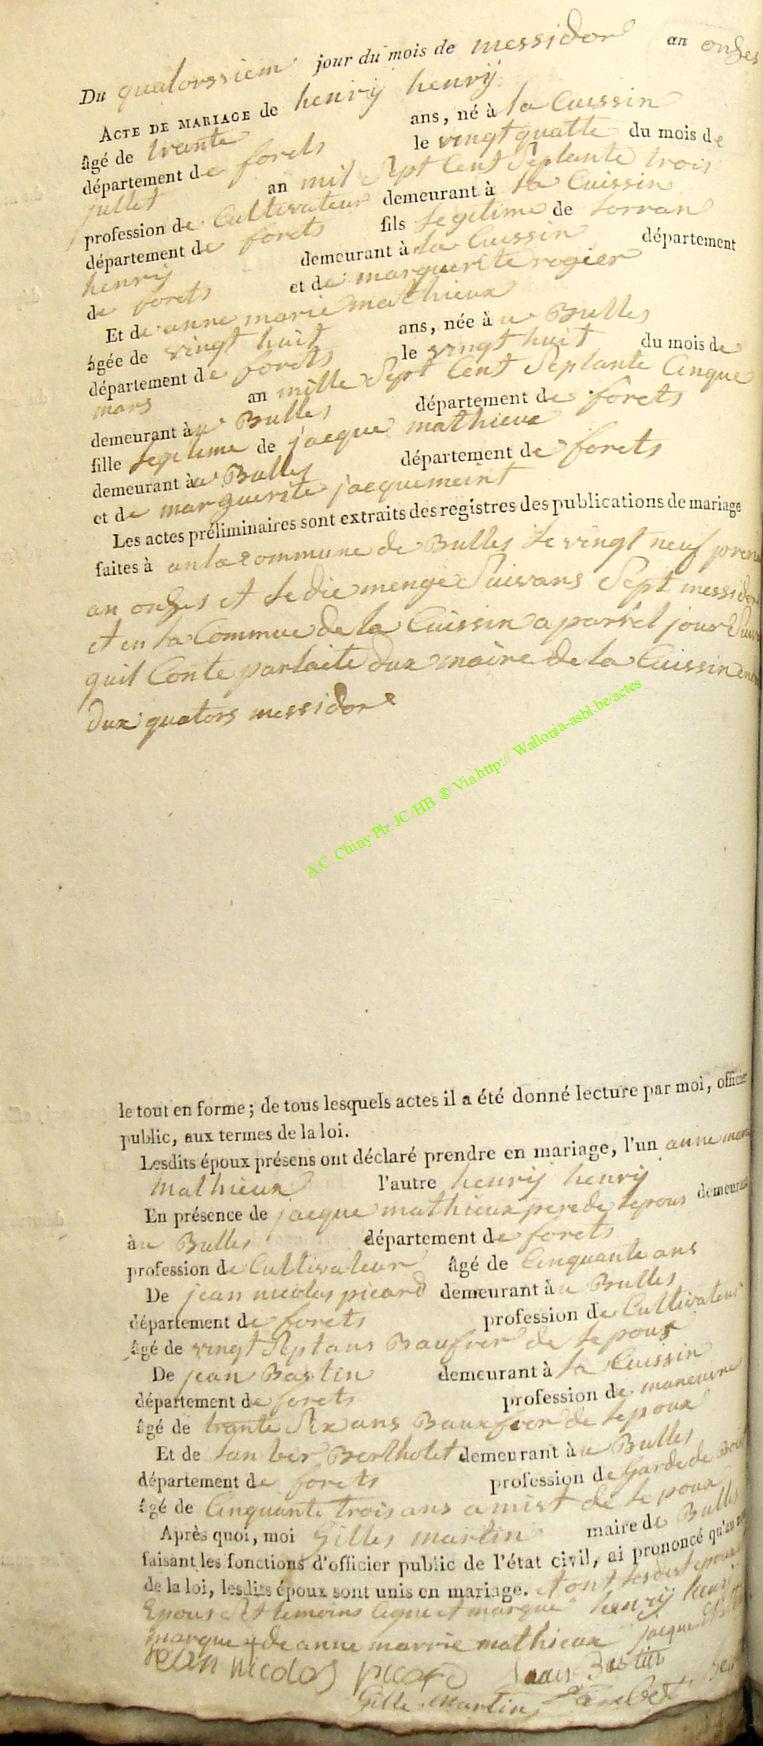 Du quatorssiem jour du mois de messidor an onzes
ACTE DE MARIAGE de henrij henrij
âgé de trante ans, né à la Cuissin
département de forets le vingt quatte du mois de
jullet an mil Sept Cent Septante trois
profession de Cultivateur demeurant à la Cuissin
département de forets fils legitime de Lorran
henrij demeurant à la Cuissin département
de forets et de marguerite rogier
Et de anne marie mathieux
âgée de vingt huit ans, née à u Bulles
département de forets le vingt huit du mois de
mars an mille Sept Cent Septante Cinque
demeurant à u Bulles département de forets
fille legitime de jacque mathieux
demeurant à u Bulles département de forets
et de marguerite jacquemeint
Les actes préliminaires sont extraits des registres des publications de mariage
faites à an la commune de Bulles le vingt neuf
an onzes et le die menge Suivans Sept messidor
et en la Commue de la Cuissin a pareil jour
quil Conte par laite dux maire de la Cuissin
dux quators messidore
A.C. Chiny Ph. JC/HB ® Via http:// Wallonia-asbl.be/actes
le tout en forme; de tous lesquels actes il a été donné lecture par moi, officier
public, aux termes de la loi.
Lesdits époux présens ont déclaré prendre en mariage, l'un anne marie
mathieux l'autre henrij henrij
En présence de jacque mathieux pere de lepous demeurant
à u Bulles département de forets
profession de Cultivateur âgé de Cinquante ans
De jean nicolas picard demeurant à u Bulles
département de forets profession de Cultivateur
âgé de vingt Sept ans Baufrer de lepoux
De jean Bastin demeurant à la Cuissin
département de forets profession de maneuvre
âgé de trante Six ans Bauxfrer de lepoux
Et de Lanber Bertholet demeurant à u Bulles
département de forets profession de Garde de Bois
âgé de Cinquante trois ans amist de lepoux
Après quoi, moi Gilles martin maire de Bulles
faisant les fonctions d'officier public de l'état civil, ai prononcé qu'au nom
de la loi, lesdits époux sont unis en mariage. et ont
Epous et temoins signe et marque henrij henrij
marque + de anne marrie mathieux jacque
jean nicolas picard Jean Bastin
Gille martin Lambert